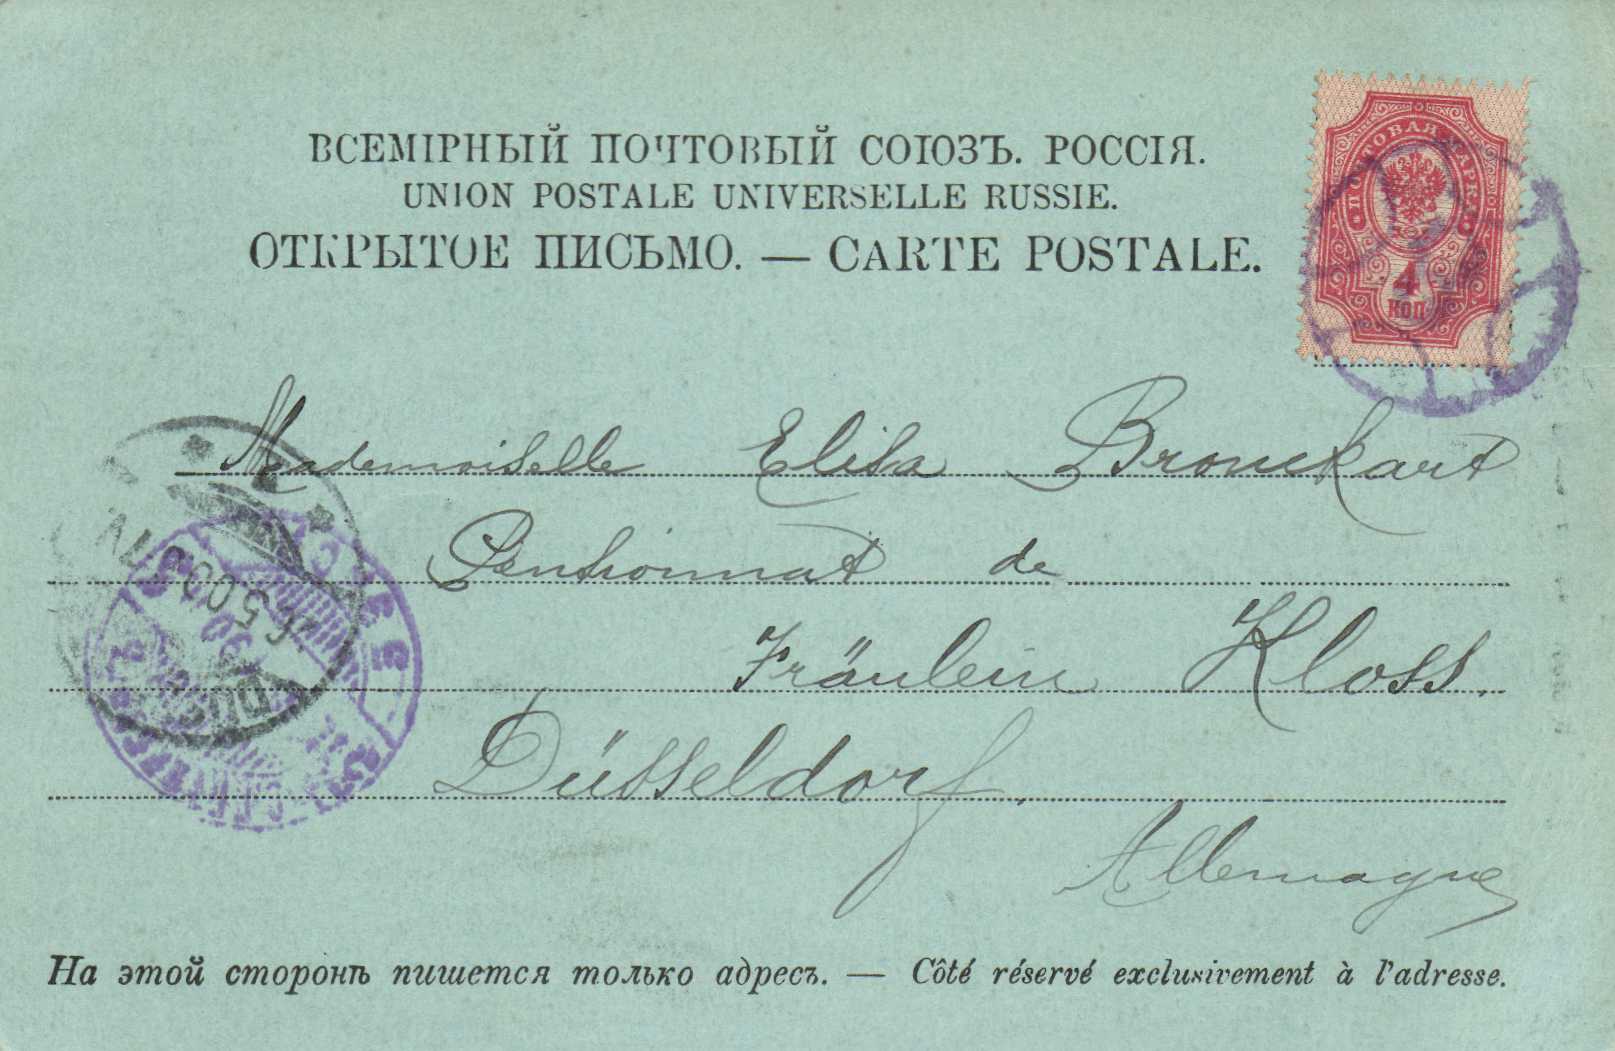 ВСЕМІРНЫЙ ПОЧТОВЫЙ СОЮЗЪ. РОССІЯ.
UNION POSTALE UNIVERSELLE RUSSIE.
ОТКРЫТОЕ ПИСЬМО. — CARTE POSTALE.
ПОЧТОВАЯ МАРКА
4
КОП
Mademoiselle Elisa Brouckart
Pensionnat de
Fräulein Kloss.
Düsseldorf.
Allemagne
На этой сторонѣ пишется только адресъ. — Côté réservé exclusivement à l'adresse.